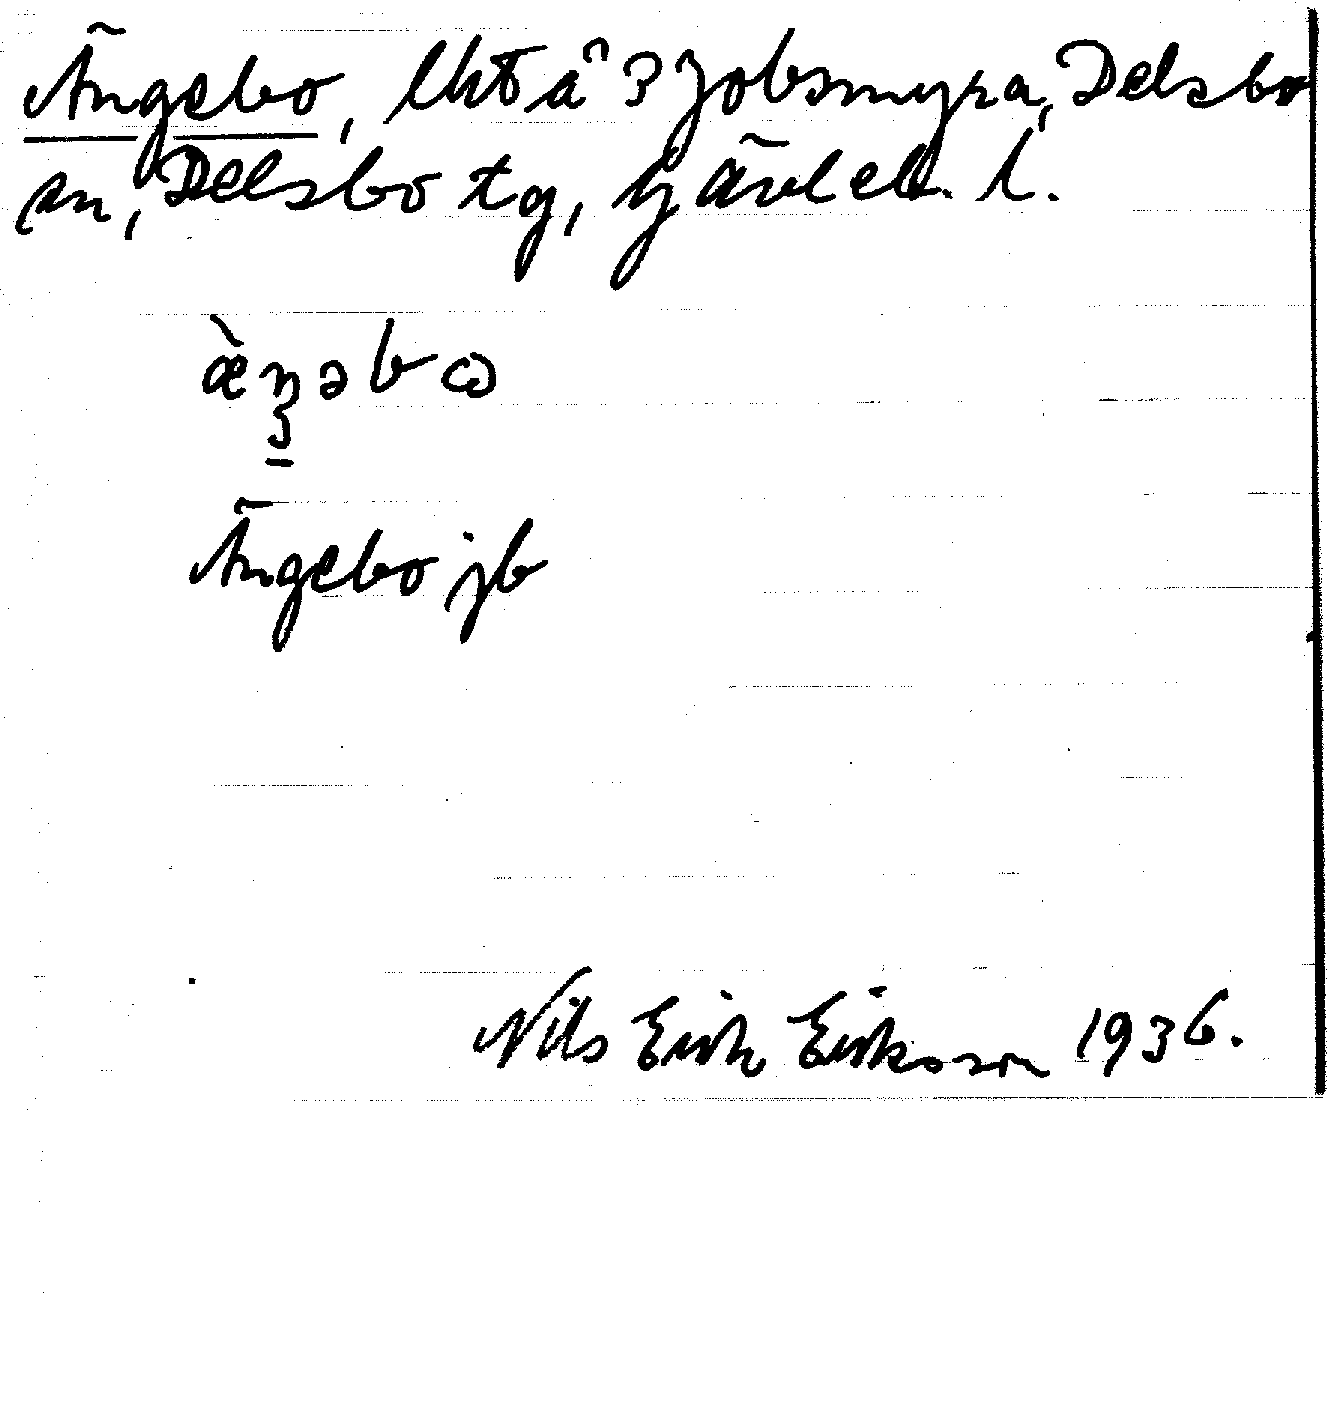 Ängebo, lht å 3 Jobsmyra, Delsbo
sn, Delsbo tg, Gävleb. l.
Ängebo jb
Nils Erik Eriksson 1936.